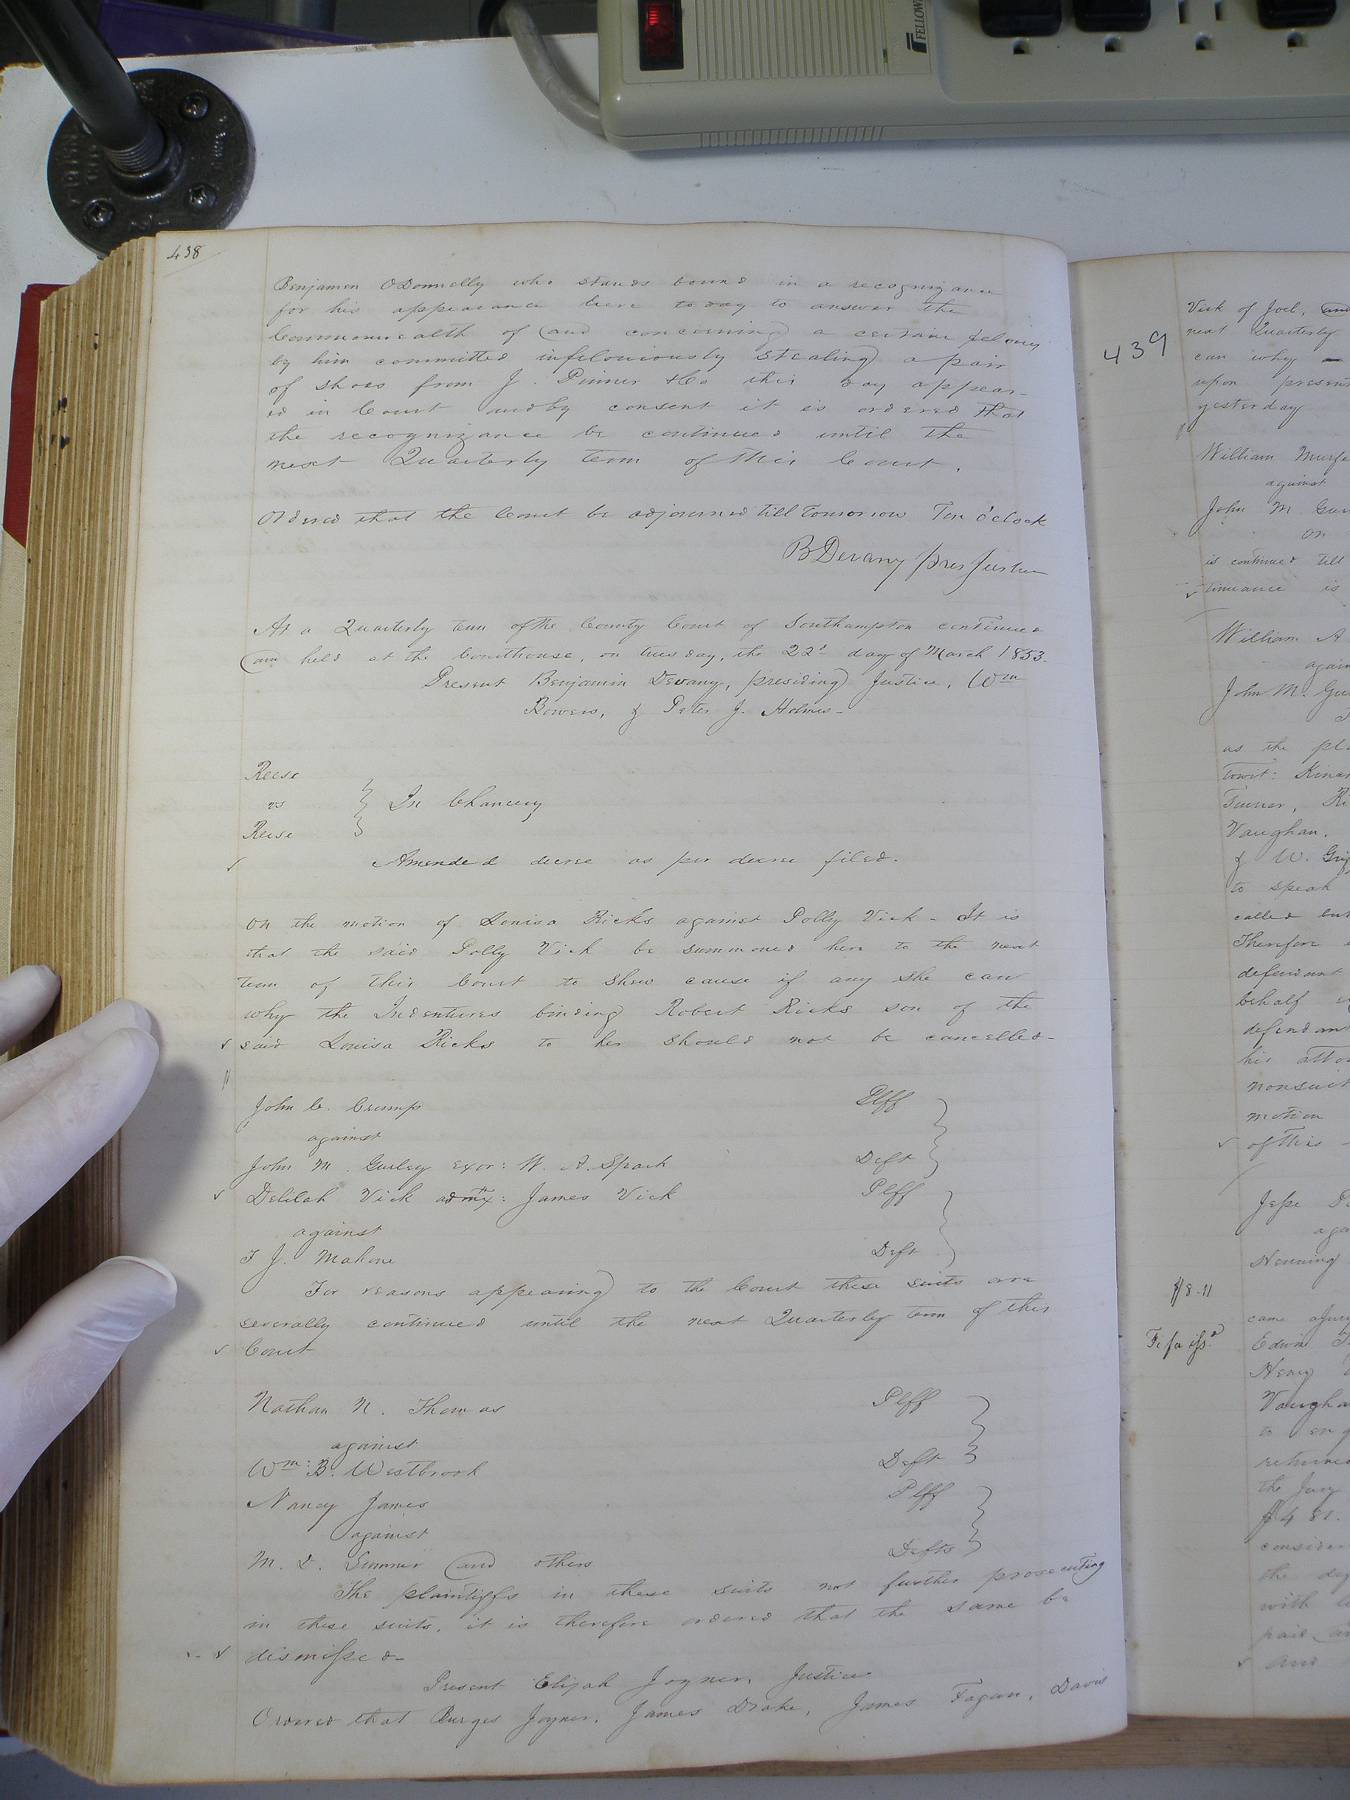 FELLOWE
438
Benjamin ODonnelly who stands bound in a recognizance
for his appearance here to day to answer the
Commonwealth of and concerning a certain felony
by him committed infeloniously stealing a pair
of shoes from J. Pinner & Co this day appear-
ed in Court and by consent it is ordered that
the recognizance be continued until the
next Quarterly term of this Court.
Ordered that the Court be adjourned till tomorrow Ten o'clock
B Devany pres Justice
At a Quarterly term of the County Court of Southampton continued
and held at the Courthouse, on tuesday, the 22d day of March 1853.
Present Benjamin Devany, presiding Justice, Wm
Bowers, & Peter J. Holmes-
Reese
vs
Reese
In Chancery
Amended decree as per decree filed.
On the motion of Louisa Ricks against Polly Vick - It is
that the said Polly Vick be summoned here to the next
term of this Court to shew cause if any she can
why the Indentures binding Robert Ricks son of the
said Louisa Ricks to her should not be cancelled-
John C. Crump Plff
against
John M. Gurley exor: W. A. Spark Deft
Delilah Vick admtx: James Vick Plff
against
T J. Mahone Deft
For reasons appearing to the Court these suits are
severally continued until the next Quarterly term of this
Court
Nathan N. Thomas Plff
against
Wm: B. Westbrook Deft
Nancy James Plff
against
M. D. Sumner and others Defts
The plaintiffs in these suits not further prosecuting
in these suits, it is therefore ordered that the same be
dismissed-
Present Elijah Joyner, Justice
Ordered that Burges Joyner, James Drake, James Fagan, Davis
439
Vick of Joel, and
next Quarterly
can why
upon present
yesterday
William Murfe
against
John M Gur
on
is continued till
tinuance is
William A
again
John M. Gu
as the pl
towit: Kinar
Turner, Ri
Vaughan,
& W. Gri
to speak
called but
Therefore
defendant
behalf
defendant
his atto
nonsuit
motion
of this
Jesse
aga
Henning
$8-11
came a jury
Fi fa issd
Edwin
Henry
Vaugha
to enq
returned
the Jury
$481.
consider
the de
with
paid, an
and